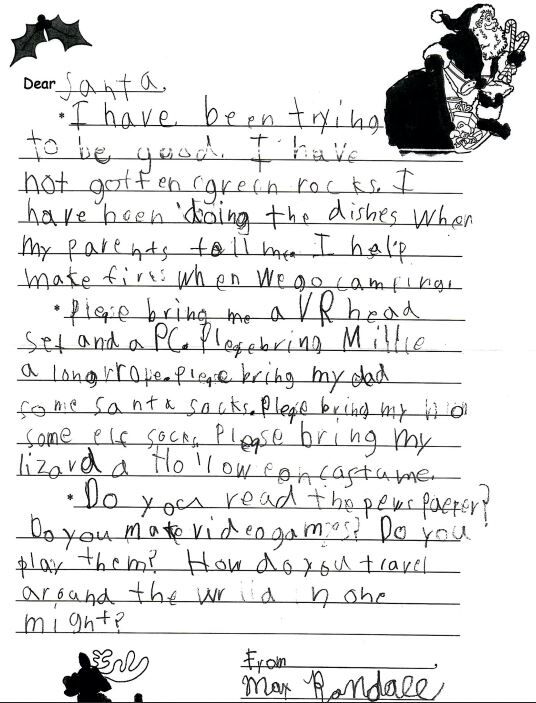 Dear Santa,
* I have been trying
to be good. I have
not gotten green rocks. I
have been doing the dishes when
my parents tell me. I help
make fires when we go camping.
* Plese bring me a VR head
set and a PC. Plese bring Millie
a long rrope. Plese bring my dad
some santa socks. Plese bring my
some elf socks. Plese bring my
lizard a Holloweon castume.
* Do you read the news paeper?
Do you make videogames? Do you
play them? How do you travel
around the wrld in one
might?
From
Max Randall